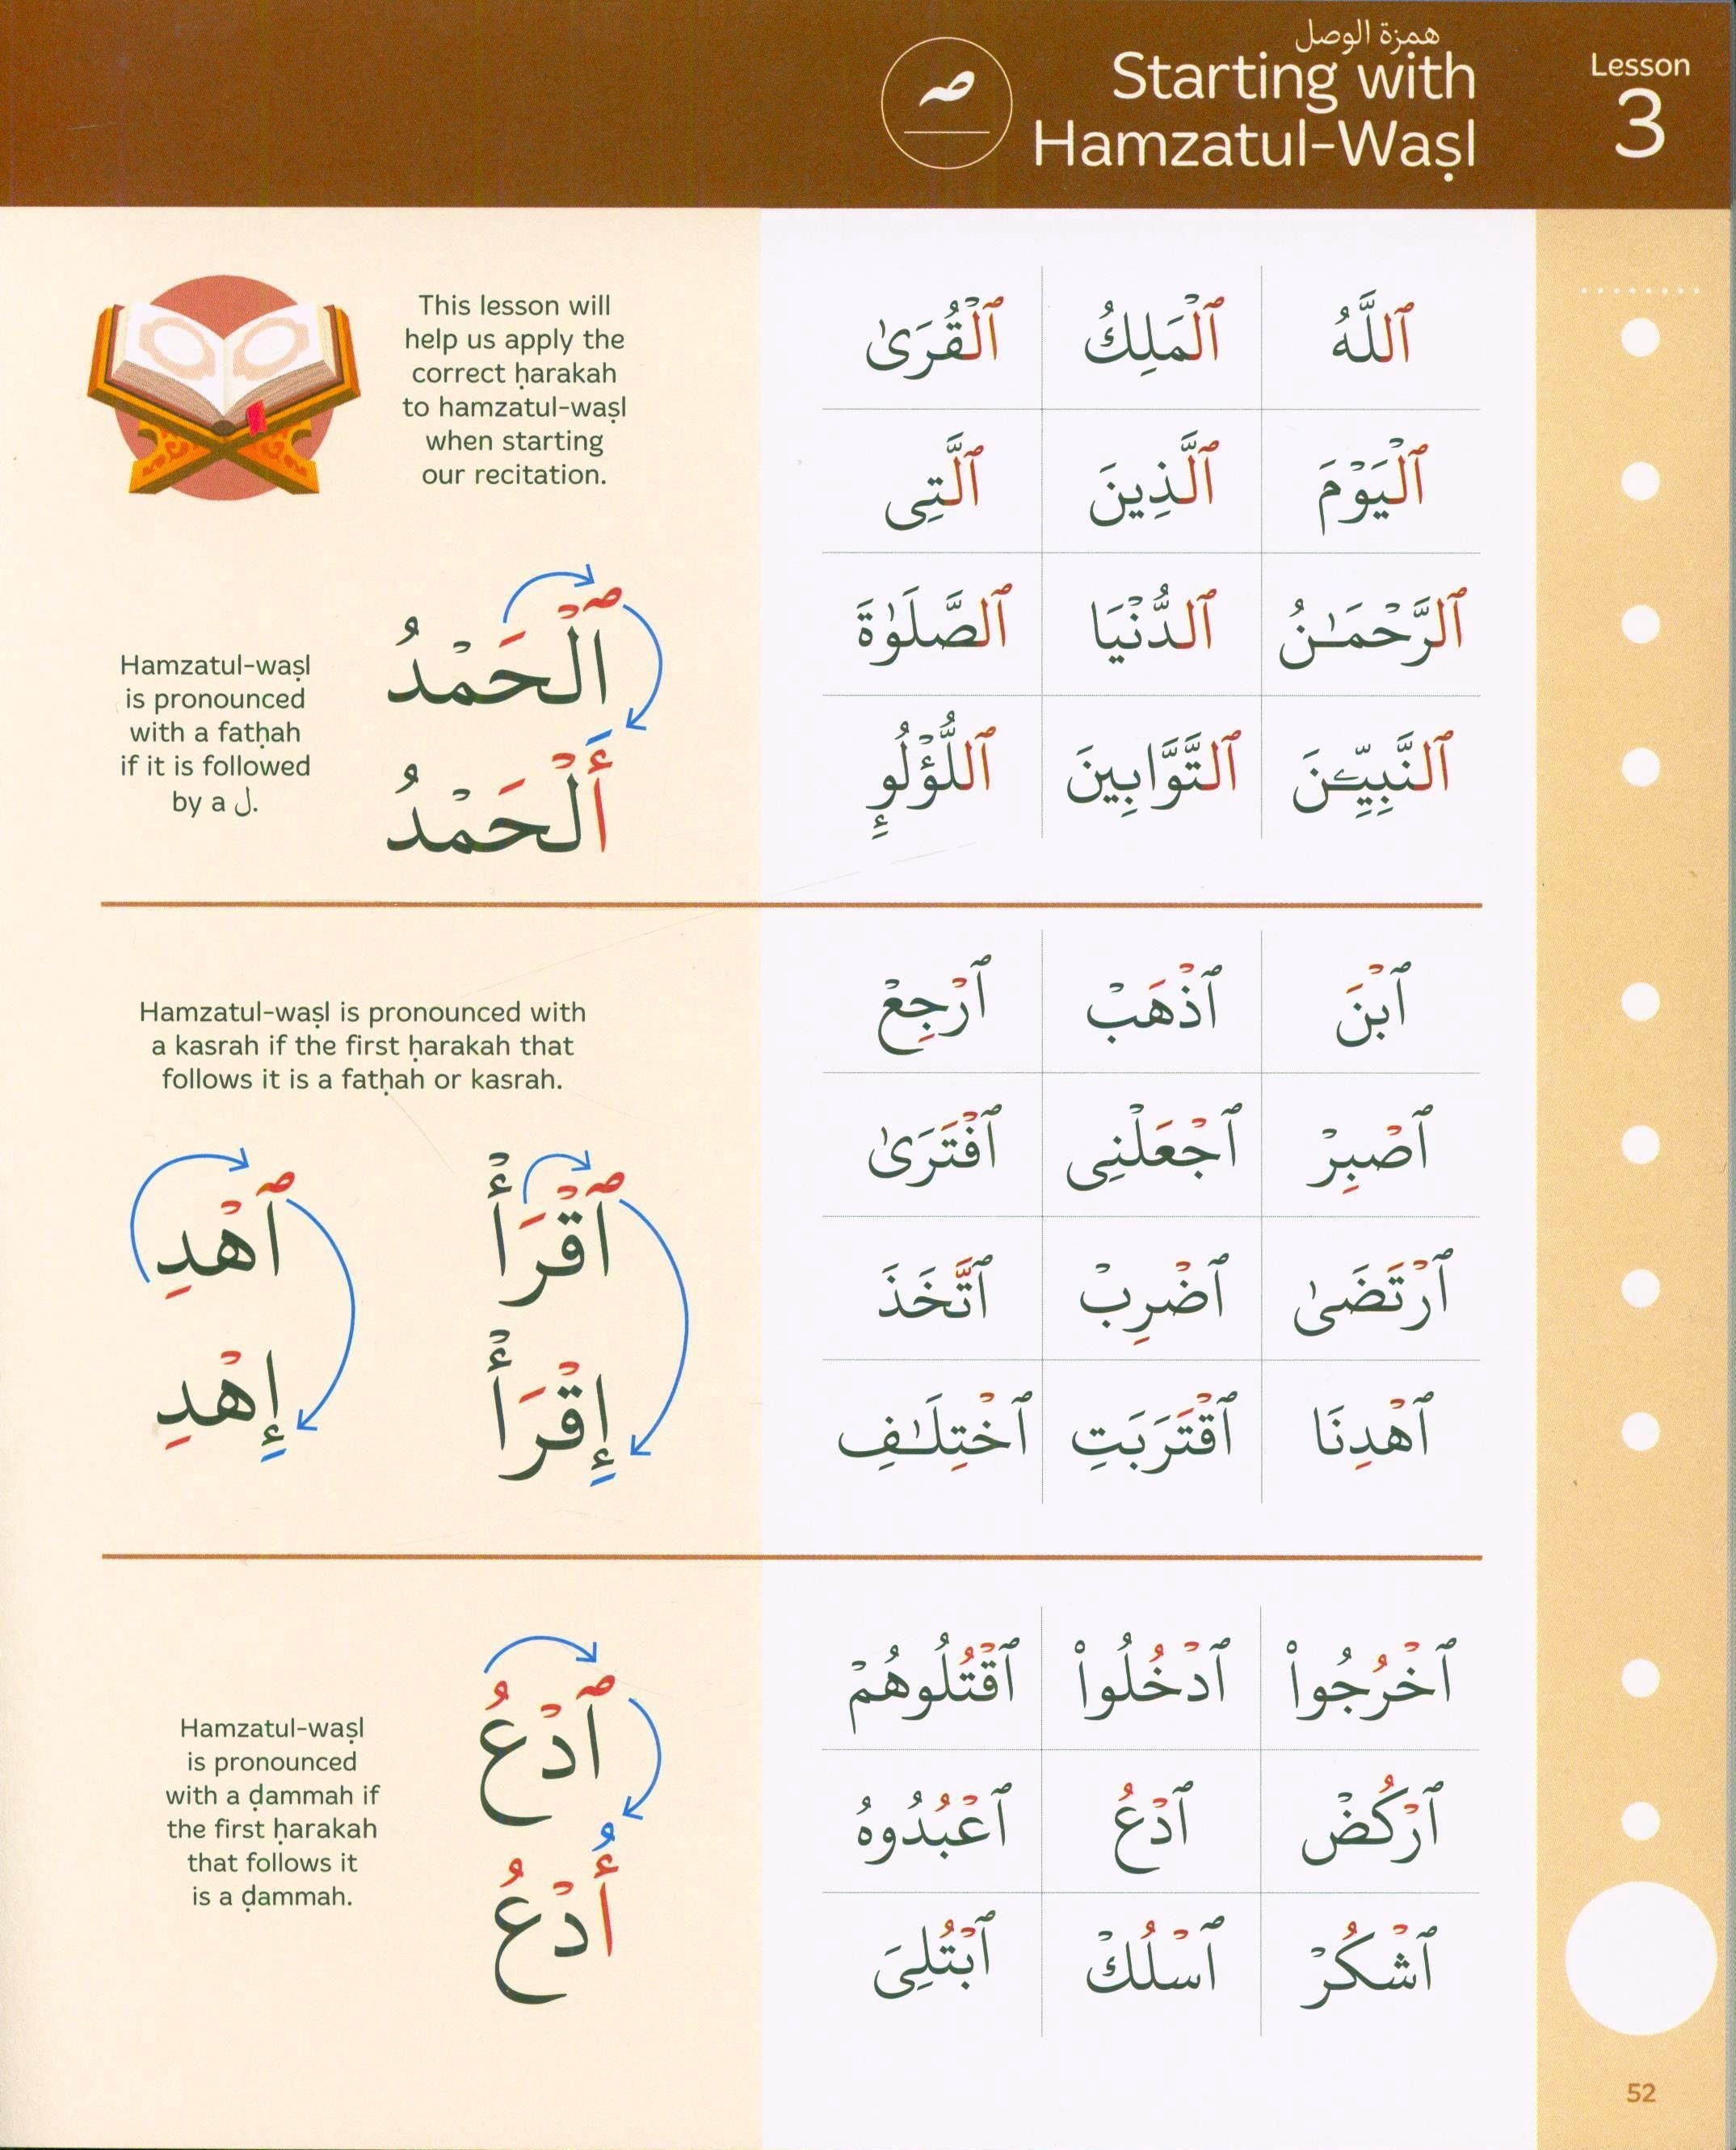 همزة الوصل
Starting with
Hamzatul-Waṣl
Lesson
3
This lesson will
help us apply the
correct ḥarakah
to hamzatul-waṣl
when starting
our recitation.
Hamzatul-waṣl
is pronounced
with a fatḥah
if it is followed
by a ل.
ٱلْحَمْدُ
أَلْحَمْدُ
ٱللَّهُ ٱلْمَلِكُ ٱلْقُرَىٰ
ٱلْيَوْمَ ٱلَّذِينَ ٱلَّتِى
ٱلرَّحْمَـٰنُ ٱلدُّنْيَا ٱلصَّلَوٰةَ
ٱلنَّبِيِّـۧنَ ٱلتَّوَّابِينَ ٱللُّؤْلُوإِ
Hamzatul-waṣl is pronounced with
a kasrah if the first ḥarakah that
follows it is a fatḥah or kasrah.
ٱقْرَأْ ٱهْدِ
إِقْرَأْ إِهْدِ
ٱبْنَ ٱذْهَبْ ٱرْجِعْ
ٱصْبِرْ ٱجْعَلْنِى ٱفْتَرَىٰ
ٱرْتَضَىٰ ٱضْرِبْ ٱتَّخَذَ
ٱهْدِنَا ٱقْتَرَبَتِ ٱخْتِلَـٰفِ
Hamzatul-waṣl
is pronounced
with a ḍammah if
the first ḥarakah
that follows it
is a ḍammah.
ٱدْعُ
أُدْعُ
ٱخْرُجُوا۟ ٱدْخُلُوا۟ ٱقْتُلُوهُمْ
ٱرْكُضْ ٱدْعُ ٱعْبُدُوهُ
ٱشْكُرْ ٱسْلُكْ ٱبْتُلِىَ
52